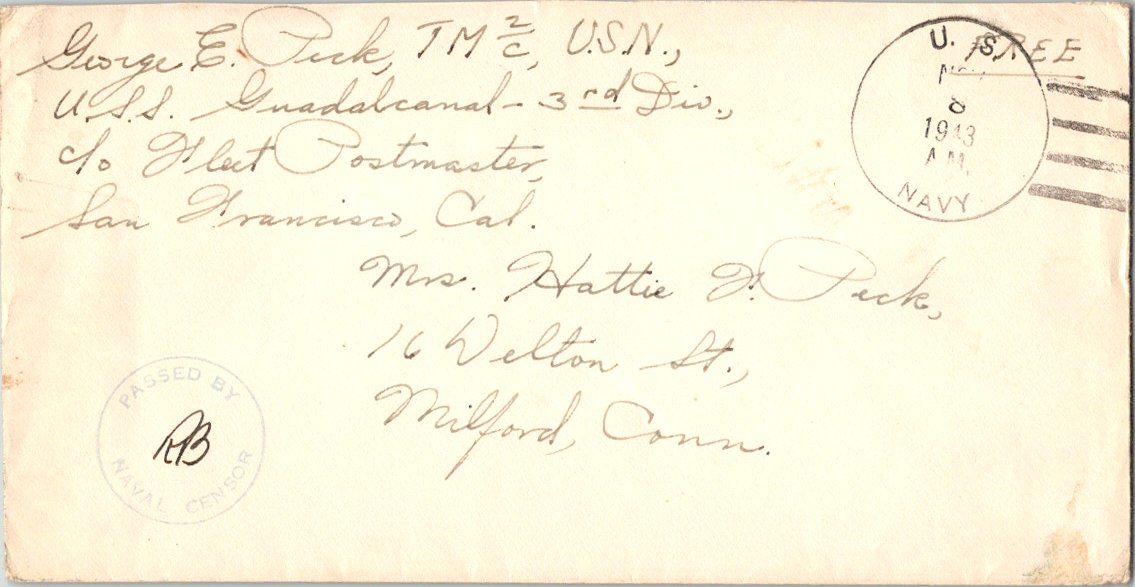 George E. Peck, TM 2/c, U.S.N.,
U.S.S. Guadalcanal - 3rd Div.,
c/o Fleet Postmaster,
San Francisco, Cal.
FREE
U. S.
NOV
8
1943
A.M.
NAVY
Mrs. Hattie F. Peck,
16 Welton St.,
Milford, Conn.
PASSED BY
RB
NAVAL CENSOR